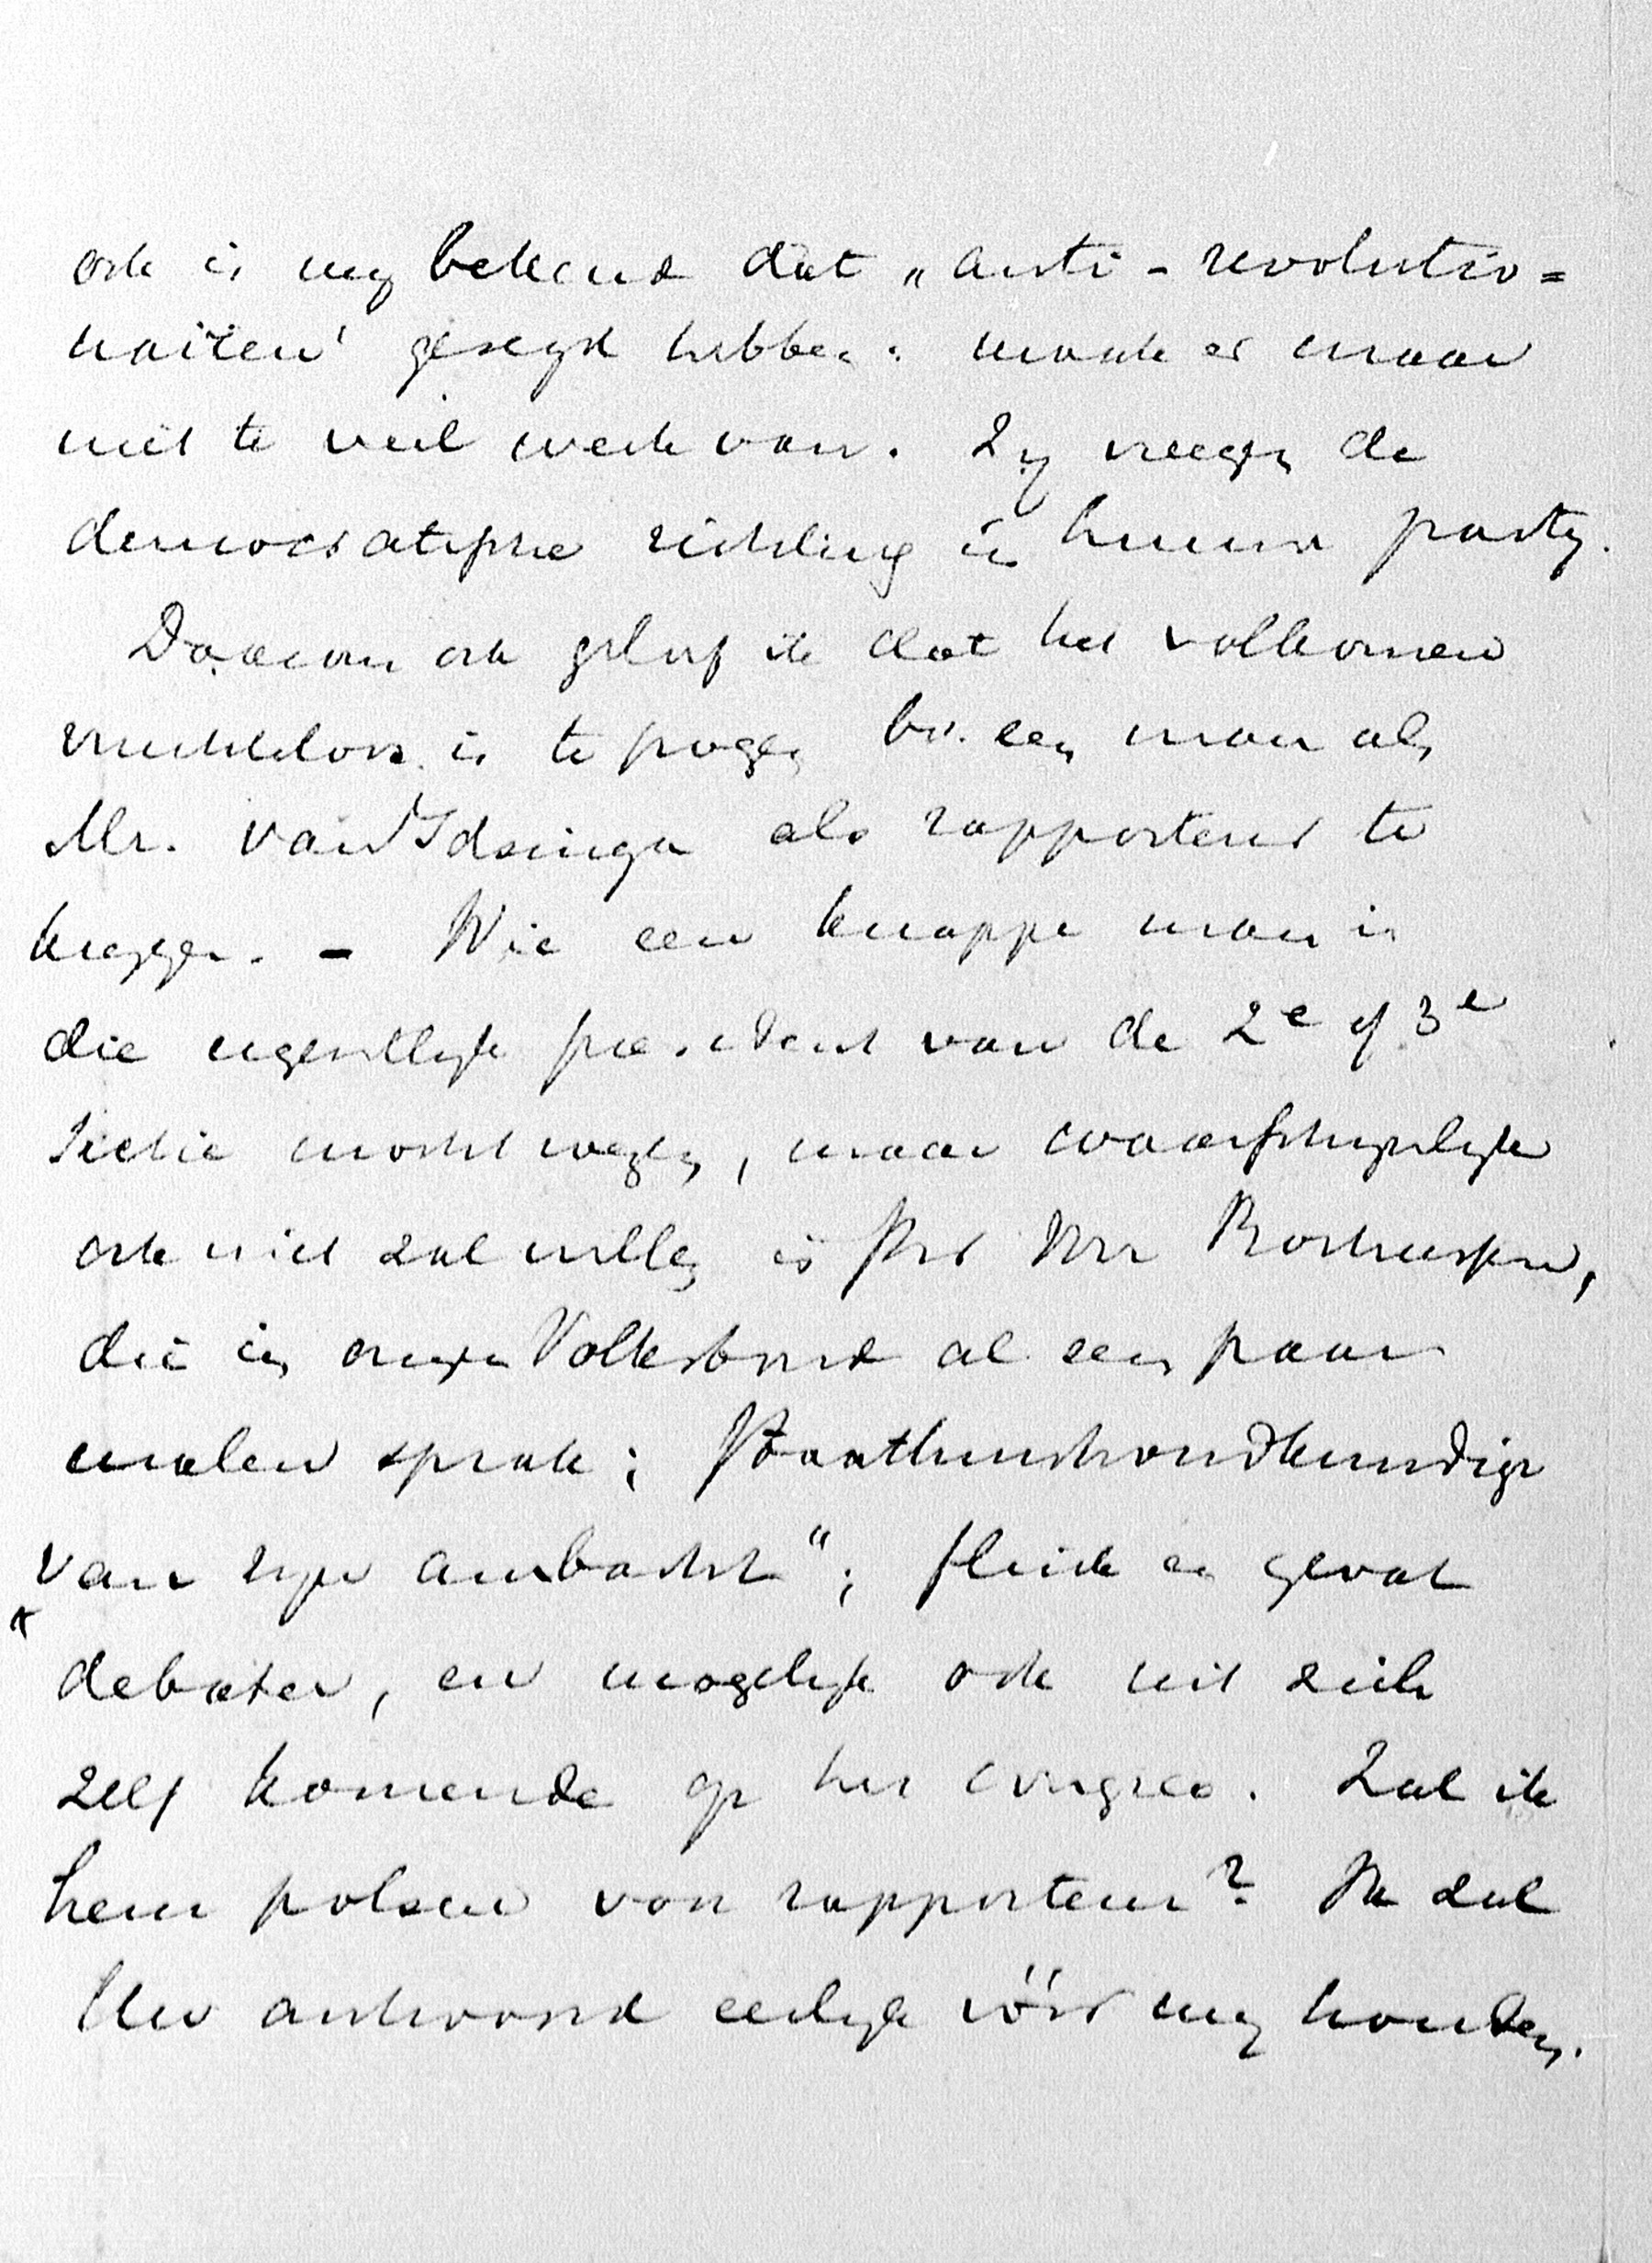 ook is my bekend dat „anti-revolutio=
nairen' gezegd hebben: maak er maar
niet te veel werk van. Zy vreezen de
democratische richting in hunne party.
Daarom ook geloof ik dat het volkomen
vruchteloos is te pogen bv. een man als
Mr. van Idsinga als rapporteur te
krygen. - Wie een knappe man is
die eigenlyk president van de 2e of 3e
Sectie moest wezen, maar waarschynlyk
ook niet zal willen is Prof
die in onzen Volksbond al een paar
malen sprak; Staathuishoudkundige
van zyn ambacht"; flink en gevat
debater, en mogelyk ook uit zich
zelf komende op het congres. Zal ik
hem polsen voor rapporteur? Ik zal
Uw antwoord eerlyk vóór my houden.